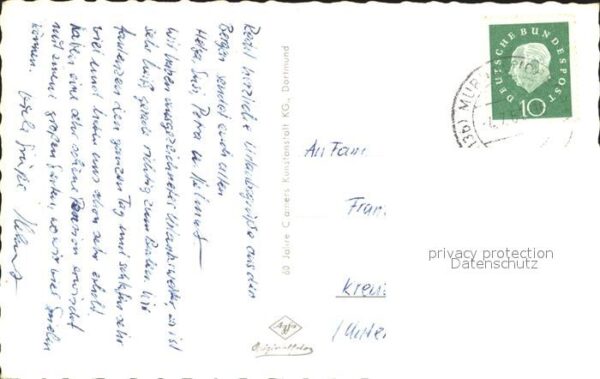 Recht herzliche Urlaubsgrüße aus den
Bergen sendet euch allen
Helga, Susi, Petra u. Helmut —
Wir haben ausgezeichnetes Urlaubswetter, es ist
sehr heiß, grade richtig zum Baden. Wir
den ganzen Tag und schlafen sehr
viel und haben uns schon sehr erholt
haben eine sehr schöne Pension erwischt
mit einem großen Garten, wo wir viel
können. Viele Grüße Helmut
60 Jahre Cramers Kunstanstalt KG., Dortmund
Agfa
Originalfoto
DEUTSCHE BUNDESPOST
10
(13b) MUR
An Fam
Fran
Kreu
(Unter
privacy protection
Datenschutz